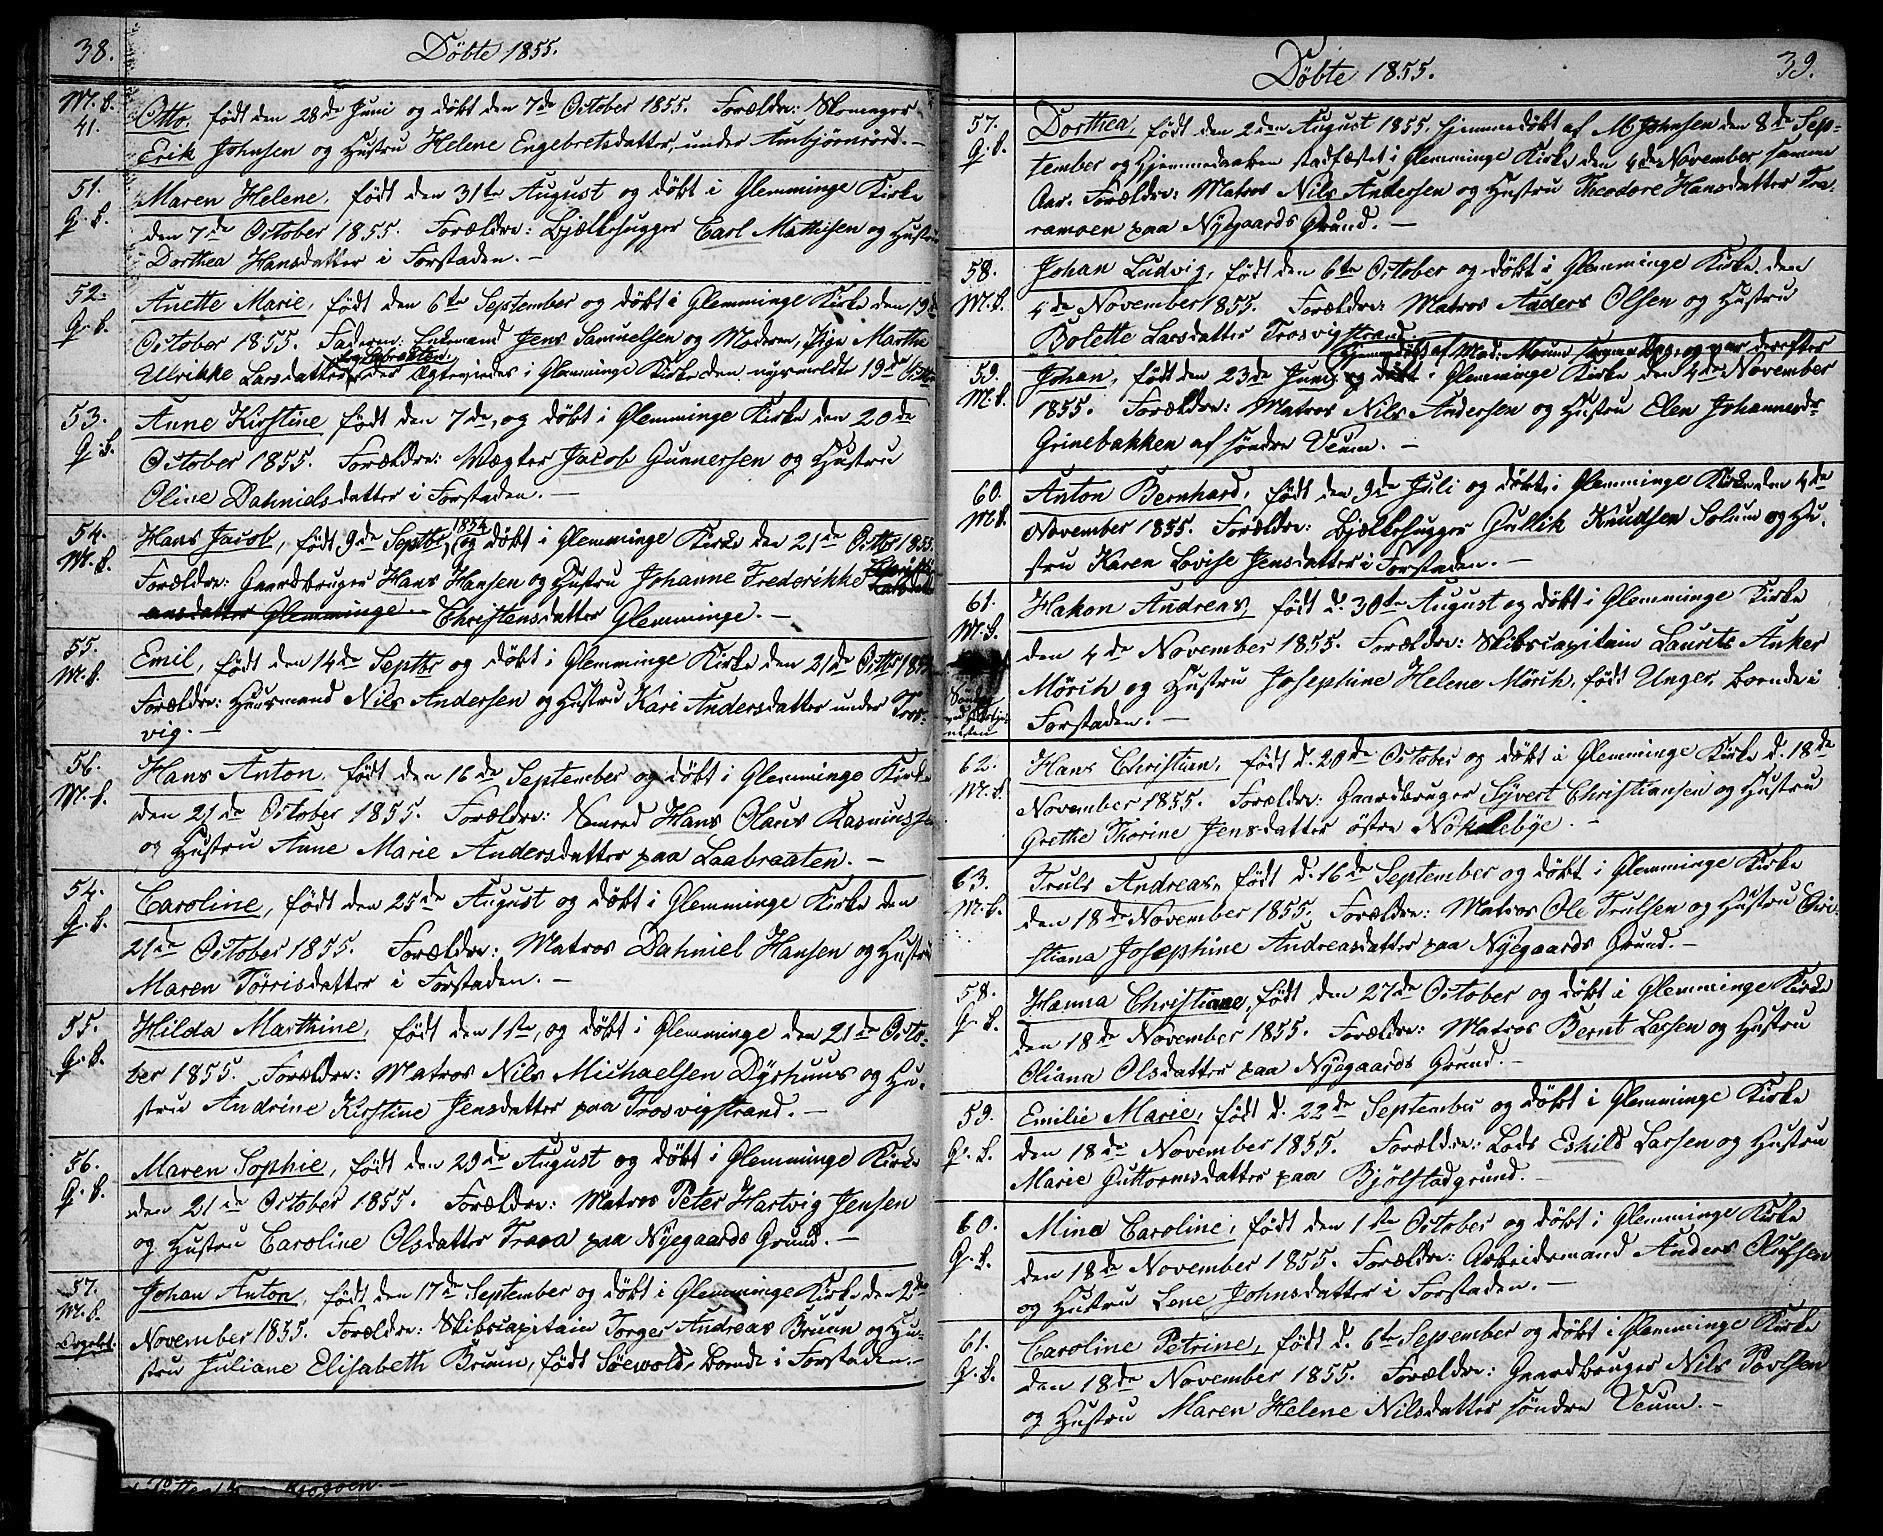 38.
Döbte 1855.
M. S.
41.
Otto, født den 28de Juni og døbt den 7de October 1855. Forældre: Skomager
Erik Johnsen og Hustru Helene Engebretsdatter, under Ambjørnrød. —
51.
Q. S.
Maren Helene, født den 31te August og døbt i Glemminge Kirke
den 7de October 1855. Forældre: Bjælkehugger Carl Mathisen og Hustru
Dorthea Hansdatter i Forstaden. —
52.
Q. S.
Anette Marie, født den 6te September og døbt i Glemminge Kirke den 19de
October 1855. Faderen: Enkemand Jens Samuelsen og Moderen, Pige Marthe
Ullrikke Larsdatter, der ægteviedes i Glemminge Kirke den nysmeldte 19de
53.
Q. S.
Anne Kirstine født den 7de, og døbt i Glemminge Kirke den 20de
October 1855. Forældre: Vægter Jacob Gunnersen og Hustru
Oline Dahnielsdatter i Forstaden. —
54.
M. S.
Hans Jacob, født 9de Septbr. 1854 og døbt i Glemminge Kirke den 21de Octbr 1855.
Forældre: Gaardbruger Hans Hansen og Hustru Johanne Frederikke
ansdatter Glemminge. — Christensdatter Glemminge. —
55.
M. S.
Emil, født den 14de Septbr og døbt i Glemminge Kirke den 21de Octbr 1855.
Forældre: Huusmand Nils Andersen og Hustru Kari Andersdatter under Tros-
vig. —
56.
M. S.
Hans Anton, født den 16de September og døbt i Glemminge Kirke
den 21de October 1855. Forældre: Hans Olaus Rasmussen
og Hustru Anne Marie Andersdatter paa Laabraaten. —
54.
Q. S.
Caroline, født den 25de August og døbt i Glemminge Kirke den
21de October 1855. Forældre: Matros Dahniel Hansen og Hustru
Maren Tørrisdatter i Forstaden. —
55.
Q. S.
Hilda Marthine, født den 1ste, og døbt i Glemminge den 21de Octo-
ber 1855. Forældre: Matros Nils Michaelsen Dyrhuus og Hu-
stru Andrine Kirstine Jensdatter paa Trosvigstrand. —
56.
Q. S.
Maren Sophie, født den 29de August og døbt i Glemminge Kirke
den 21de October 1855. Forældre: Matros Peter Hartvig Jensen
og Hustru Caroline Olsdatter Trara paa Nyegaards Grund. —
57.
M. S.
Johan Anton, født den 17de September og døbt i Glemminge Kirke den 2den
November 1855. Forældre: Skibscapitain Torger Andreas Bruun og Hu-
stru Juliane Elisabeth Bruun, født Söewold, boende i Forstaden. —
39.
Döbte 1855.
57.
Q. S.
Dorthea, født den 2den August 1855, hjemmedøbt af M. Johnsen den 8de Sep-
tember og Hjemmedaaben stadfæstet i Glemminge Kirke den 4de November samme
Aar. Forældre: Matros Nils Andersen og Hustru Theodore Hansdatter Tra-
ramoen paa Nyegaards Grund. —
58.
M. S.
Johan Ludvig, født den 6te October og døbt i Glemminge Kirke den
4de November 1855. Forældre: Matros Anders Olsen og Hustru
Bolette Larsdatter Trosvigstrand
59.
M. S.
hjemmedøbt af Mad. Moum samme Dag, og var derefter
Johan, født den 23de Juni, og døbt i Glemminge Kirke den 4de November
1855. Forældre: Matros Nils Andersen og Hustru Elen Johannesdr
Grinebakken af søndre Veum. —
60.
M. S.
Anton Bernhard, født den 9de Juli og døbt i Glemminge Kirke den 4de
November 1855. Forældre: Bjælkehugger Gullik Knudsen Solum og Hu-
stru Karen Lovise Jensdatter i Forstaden. —
61.
M. S.
Hakon Andreas, født d. 30te August og døbt i Glemminge Kirke
den 4de November 1855. Forældre: Skibscapitain Laurits Anker
Mörch og Hustru Josephine Helene Mörch, født Unger, boende i
Forstaden. —
62.
M. S.
Hans Christian, født d. 20de October og døbt i Glemminge Kirke d. 18de
November 1855. Forældre: Gaardbruger Syvert Christiansen og Hustru
Grethe Thorine Jensdatter østre Nökkelebye. —
63.
M. S.
Truls Andreas, født d. 16de September og døbt i Glemminge Kirke
den 18de November 1855. Forældre: Matros Ole Trulsen og Hustru Chri-
stiana Josephine Andreasdatter paa Nyegaards Grund. —
58.
Q. S.
Hanna Christiane, født den 27de October og døbt i Glemminge Kirke
den 18de November 1855. Forældre: Matros Bernt Larsen og Hustru
Oliana Olsdatter paa Nyegaards Grund. —
59.
Q. S.
Emilie Marie, født d. 22de September og døbt i Glemminge Kirke
den 18de November 1855. Forældre: Lods Eskild Larsen og Hustru
Marie Guttormsdatter paa Bjölstadgrund. —
60.
Q. S.
Mina Caroline, født den 1ste October og døbt i Glemminge Kirke
den 18de November 1855. Forældre: Arbeidsmand Anders Olufsen
og Hustru Lene Johnsdatter i Forstaden. —
61.
Q. S.
Caroline Petrine, født d. 6te September og døbt i Glemminge Kirke
den 18de November 1855. Forældre: Gaardbruger Nils Povlsen
og Hustru Maren Helene Nilsdatter søndre Veum. —